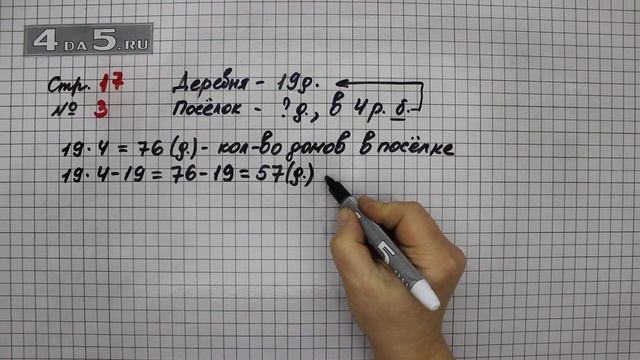 4DA5.RU
Стр. 17 Деревня - 19д.
№ 3 Посёлок - ? д., в 4 р. б.
19·4 = 76 (д.) - кол-во домов в посёлке
19·4-19 = 76-19 = 57(д.)
5